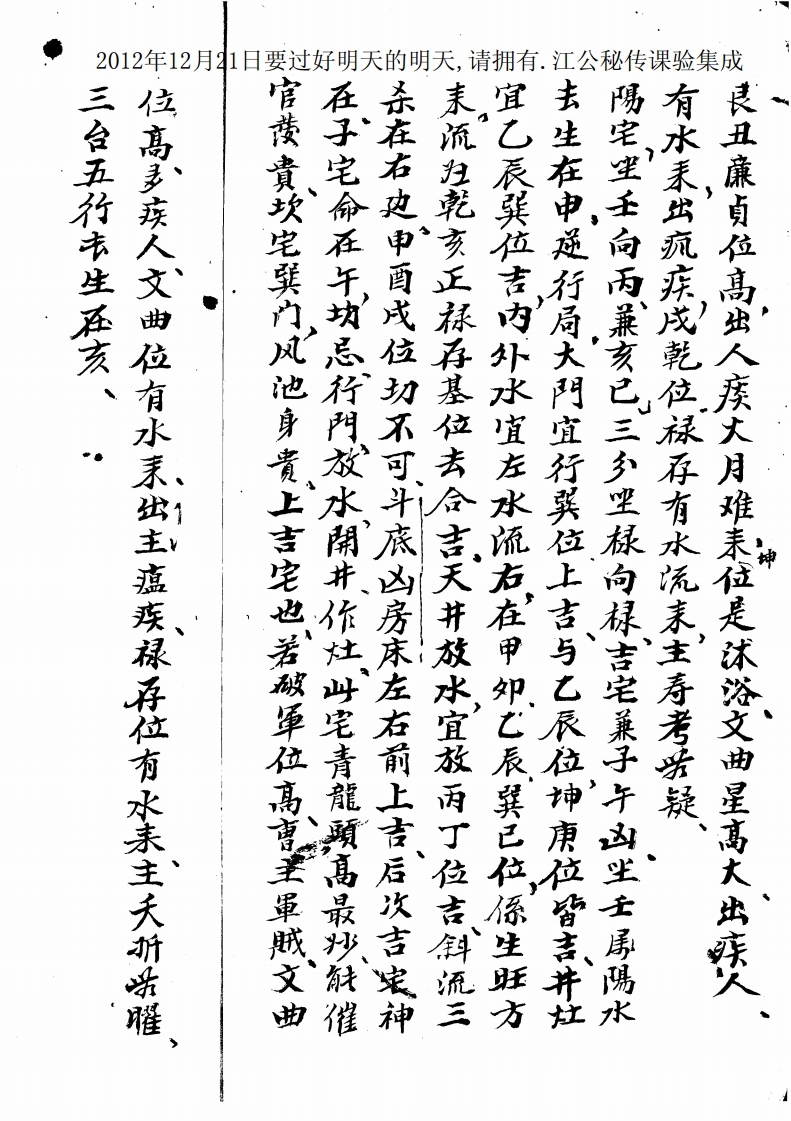 2012年12月21日要过好明天的明天,请拥有.江公秘传课验集成
艮丑廉貞位高、出人疾大月难耒、坤位是沭浴、文曲星高大、出疾人、
有水耒、出疯疾、戍乾位禄存有水流耒、主寿考疑、
陽宅、坐壬向丙、兼亥巳、三分坐禄向禄、吉宅兼子午凶、坐壬属陽水
去生在申、逆行局、大門宜行巽位上吉、与乙辰位、坤庚位皆吉、井灶
宜乙辰巽位吉、内外水宜左水流右、在甲卯乙辰巽巳位、係生旺方
耒、流归乾亥正禄存基位去合吉、天井放水、宜放丙丁位吉、斜流三
杀在右边、申酉戍位切不可、斗底凶房床左右前上吉、后次吉、宅神
在子、宅命在午、切忌、行門、放水、開井、作灶、此宅青龍頭高最妙、能催
官發貴、坎宅巽门、风池身貴、上吉宅也、若破軍位高、主軍賊、文曲
位高、多疾人、文曲位有水耒、出主瘟疾、禄存位有水耒、主夭折曜、
三台五行长生在亥、